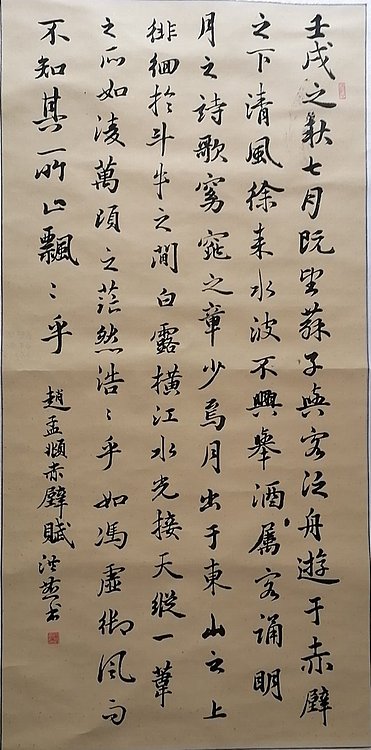 壬戌之秋七月既望蘇子與客泛舟遊于赤壁
之下清風徐來水波不興舉酒屬客誦明
月之詩歌窈窕之章少焉月出于東山之上
徘徊於斗牛之間白露橫江水光接天縱一葦
之所如淩萬頃之茫然浩〻乎如馮虛御風而
不知其所止飄〻乎
趙孟頫赤壁賦